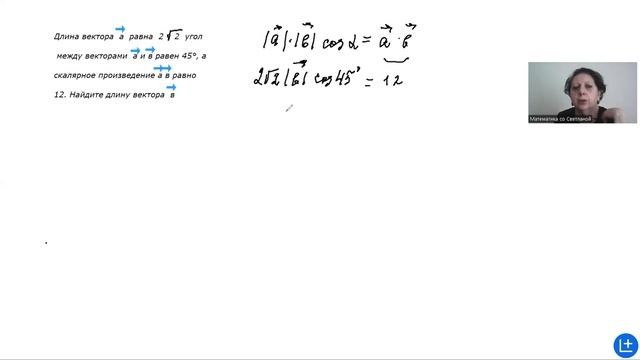 Длина вектора a равна 2√2 угол
между векторами a и в равен 45°, а
скалярное произведение a в равно
12. Найдите длину вектора в
|a|·|в| cos α = a · в
2√2 |в| cos 45° = 12
Математика со Светланой